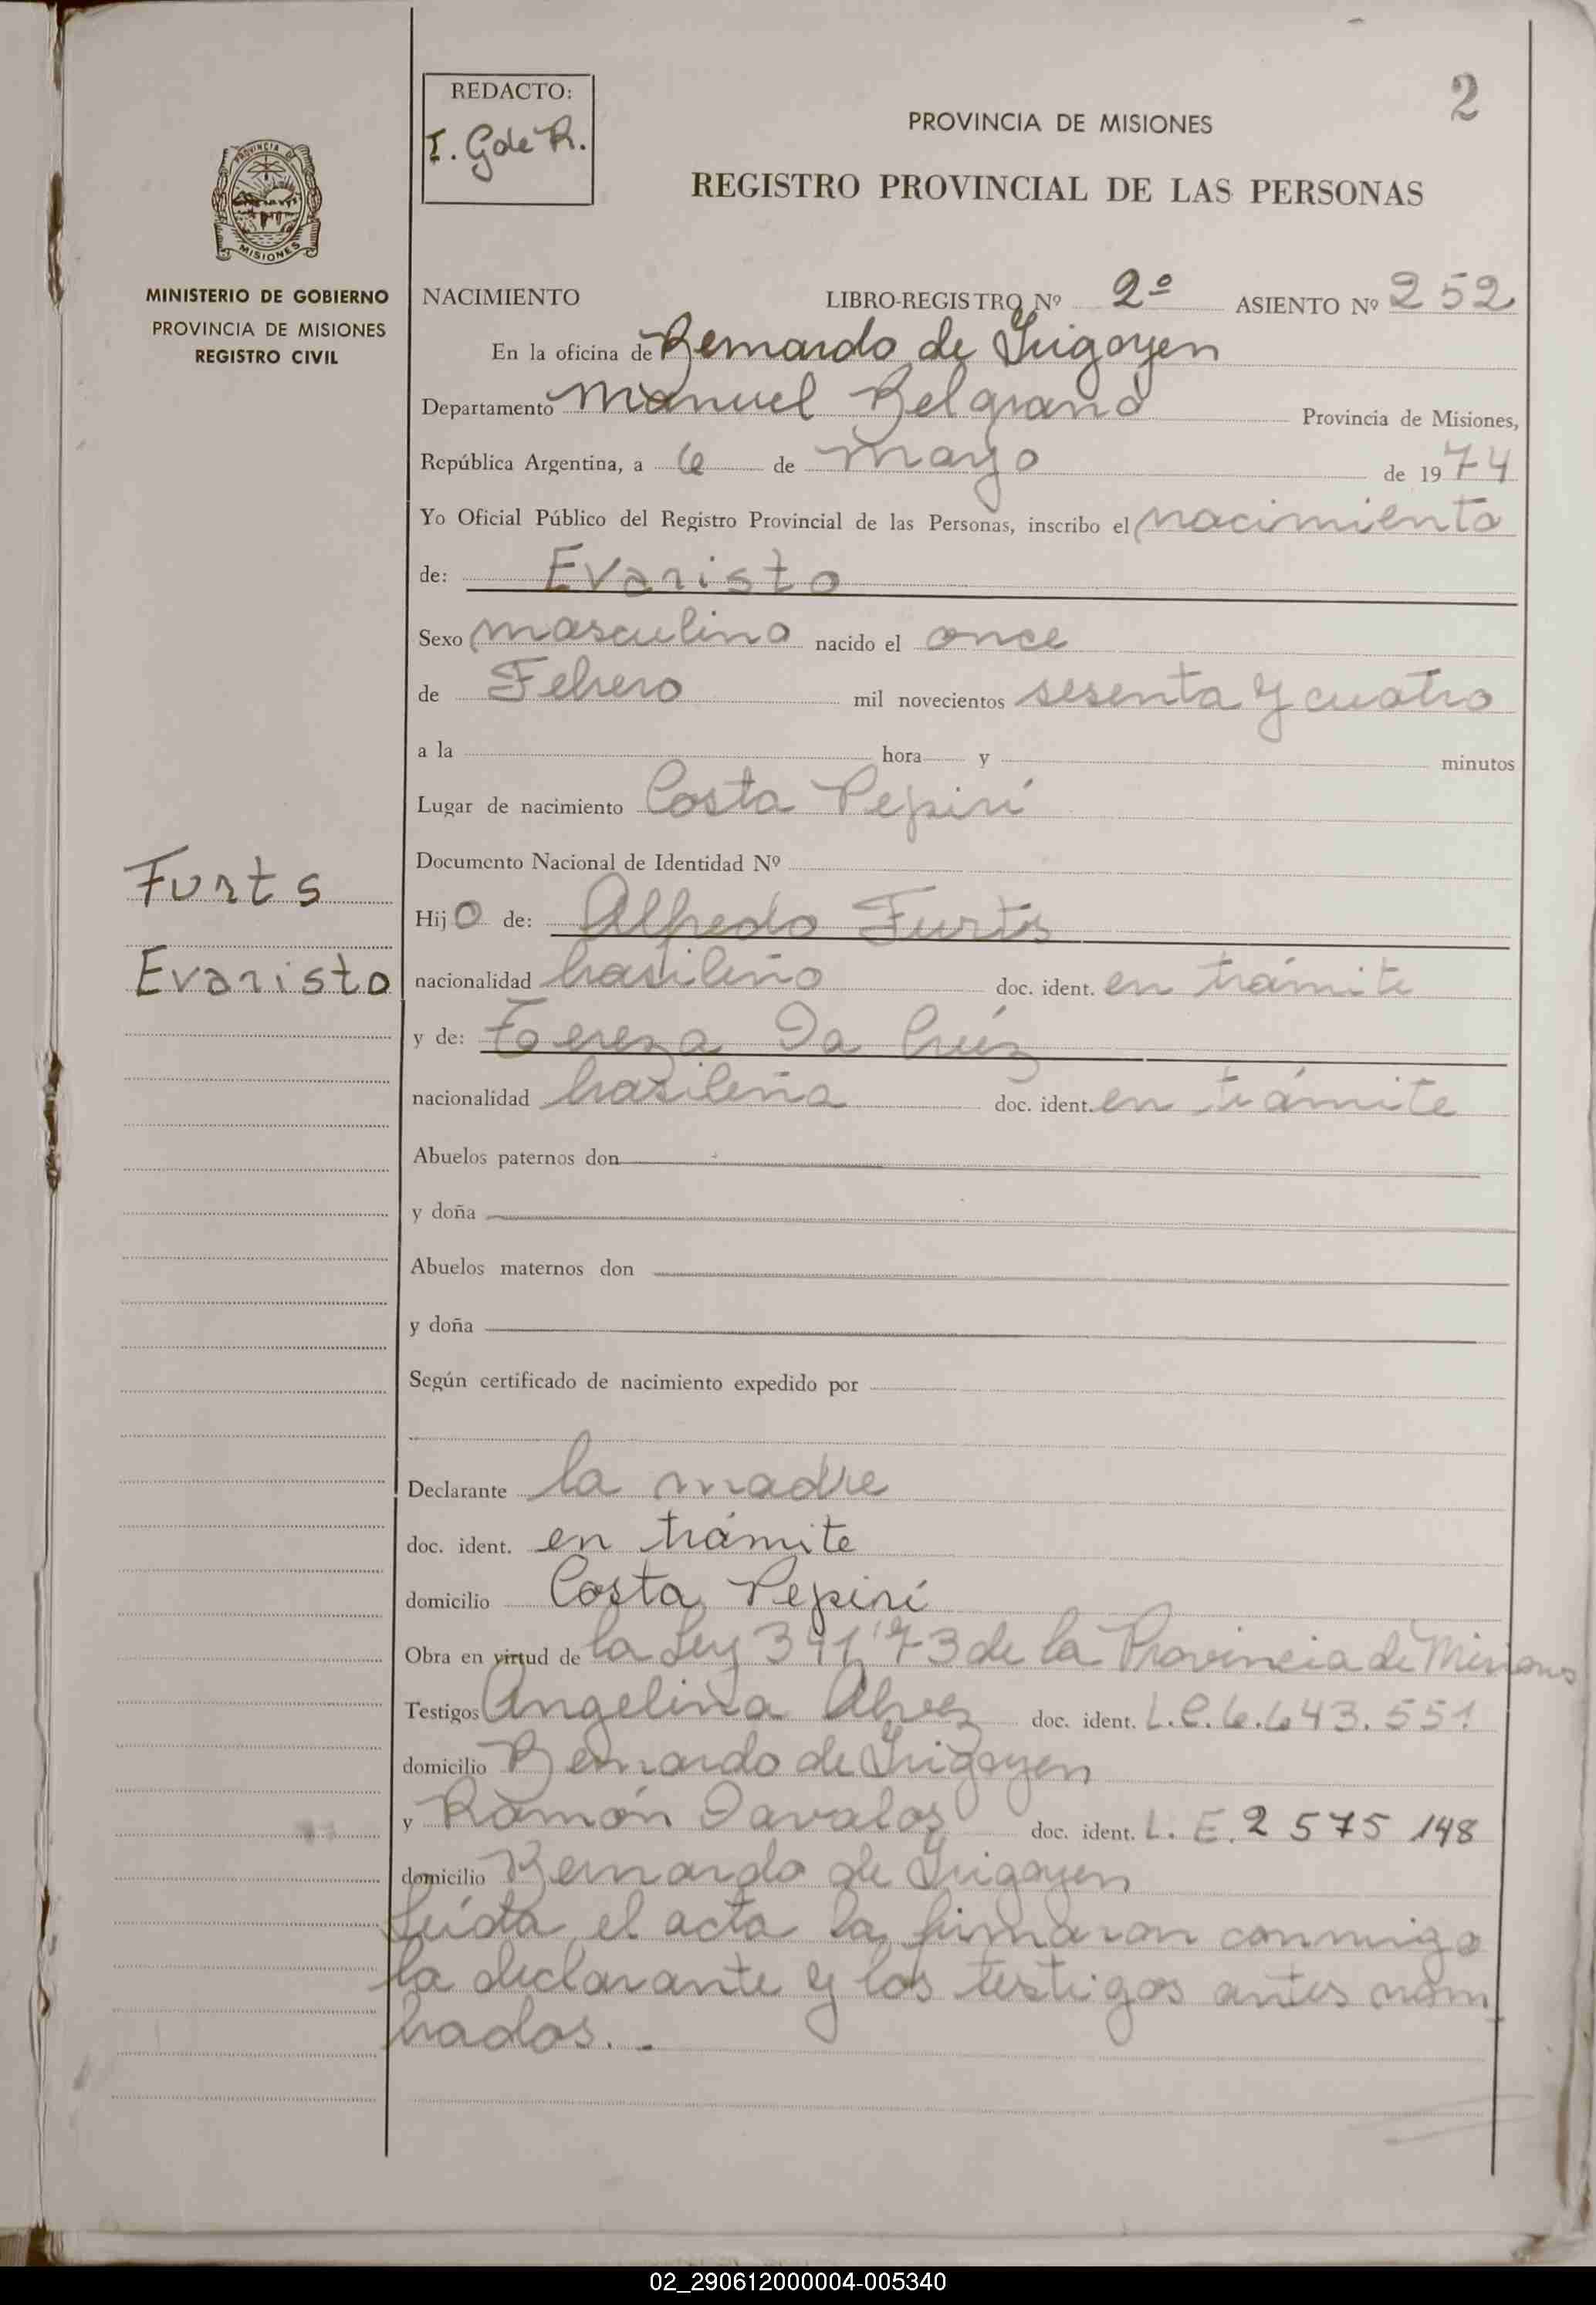 REDACTO:
I. G de R.
2
PROVINCIA DE MISIONES
REGISTRO PROVINCIAL DE LAS PERSONAS
PROVINCIA DE
MISIONES
MINISTERIO DE GOBIERNO
PROVINCIA DE MISIONES
REGISTRO CIVIL
NACIMIENTO LIBRO-REGISTRO Nº 2º ASIENTO Nº 252
En la oficina de Bernardo de Irigoyen
Departamento Manuel Belgrano Provincia de Misiones,
República Argentina, a 6 de mayo de 1974
Yo Oficial Público del Registro Provincial de las Personas, inscribo el nacimiento
de: Evaristo
Sexo masculino nacido el once
de Febrero mil novecientos sesenta y cuatro
a la hora y minutos
Lugar de nacimiento Costa Pepirí
Documento Nacional de Identidad Nº
Furts
Hijo de: Alfredo Furts
Evaristo
nacionalidad brasileño doc. ident. en trámite
y de: Tereza Da Crúz
nacionalidad brasileña doc. ident. en trámite
Abuelos paternos don
y doña
Abuelos maternos don
y doña
Según certificado de nacimiento expedido por
Declarante la madre
doc. ident. en trámite
domicilio Costa Pepirí
Obra en virtud de la Ley 391'73 de la Provincia de Misiones
Testigos Angelina Alvez doc. ident. L.C. 6.643.551
domicilio Bernardo de Irigoyen
y Ramón Davalos doc. ident. L. E. 2 575 148
domicilio Bernardo de Irigoyen
Leída el acta la firmaron conmigo
la declarante y los testigos antes nom
brados. . -
02_290612000004-005340